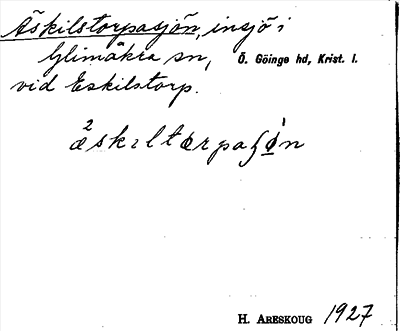 Äskilstorpasjön, insjö i
Glimåkra sn, Ö. Göinge hd, Krist. l.
vid Eskilstorp.
²æskɪltɵrpaʃø̱̍n
H. ARESKOUG 1927